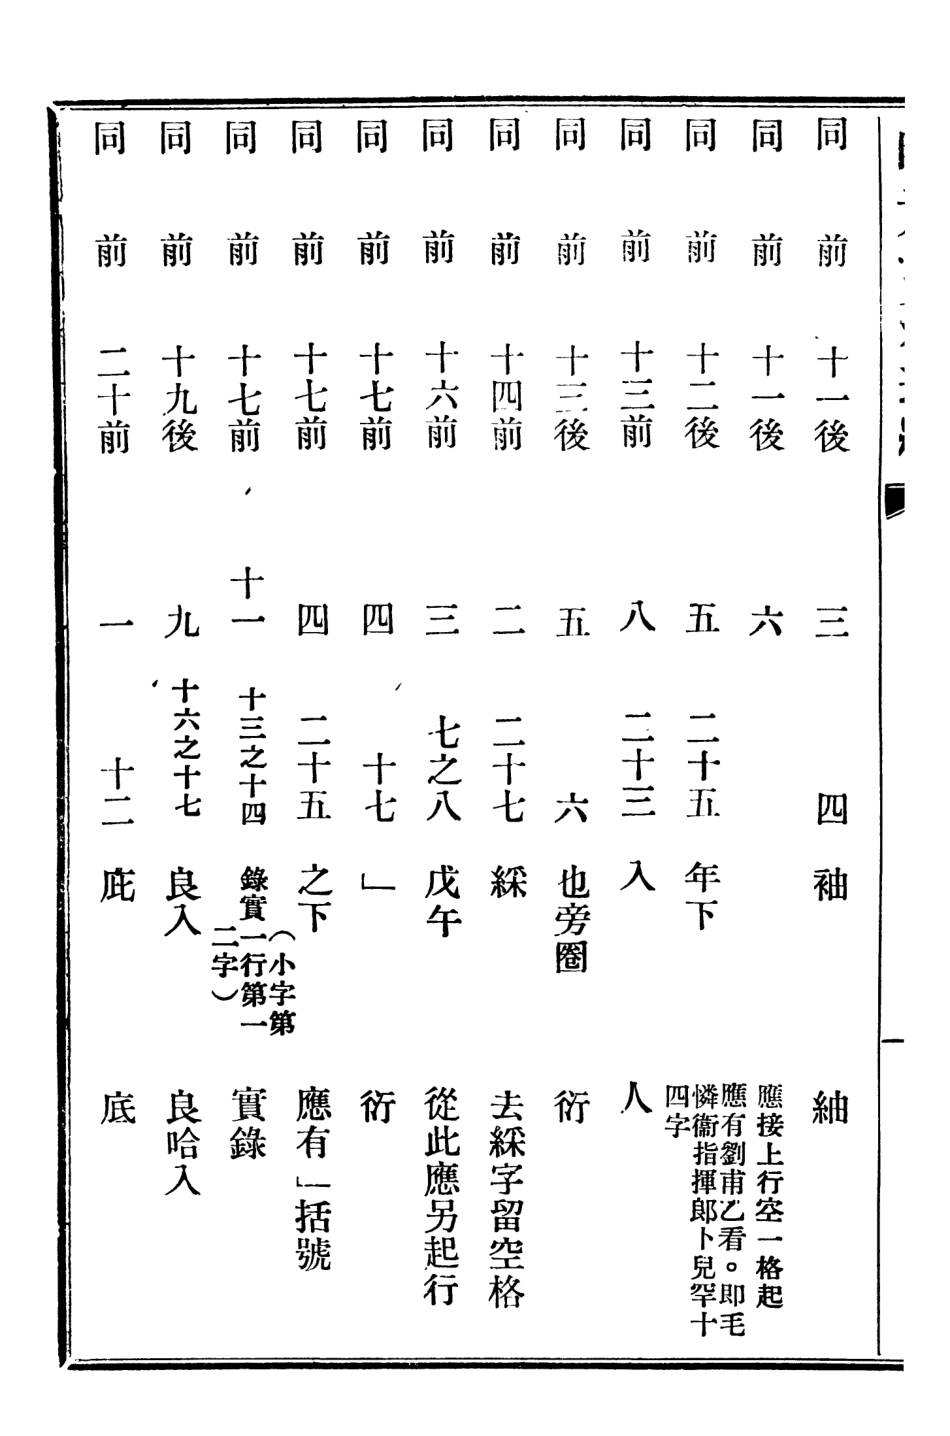 同前　十一後　三　四　袖　紬
同前　十一後　六　應接上行空一格起
同前　十二後　五　二十五　年下　應有劉甫乙看。即毛
憐衞指揮郎卜兒罕十
四字
同前　十三前　八　二十三　入　人
同前　十三後　五　六　也旁圈　衍
同前　十四前　二　二十七　綵　去綵字留空格
同前　十六前　三　七之八　戊午　從此應另起行
同前　十七前　四　十七　」　衍
同前　十七前　四　二十五　之下　應有」括號
同前　十七前　十一　十三之十四　錄實（小字第
一行第一
二字）　實錄
同前　十九後　九　十六之十七　良入　良哈入
同前　二十前　一　十二　庇　底